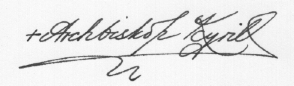 +Archbishop Kyrill